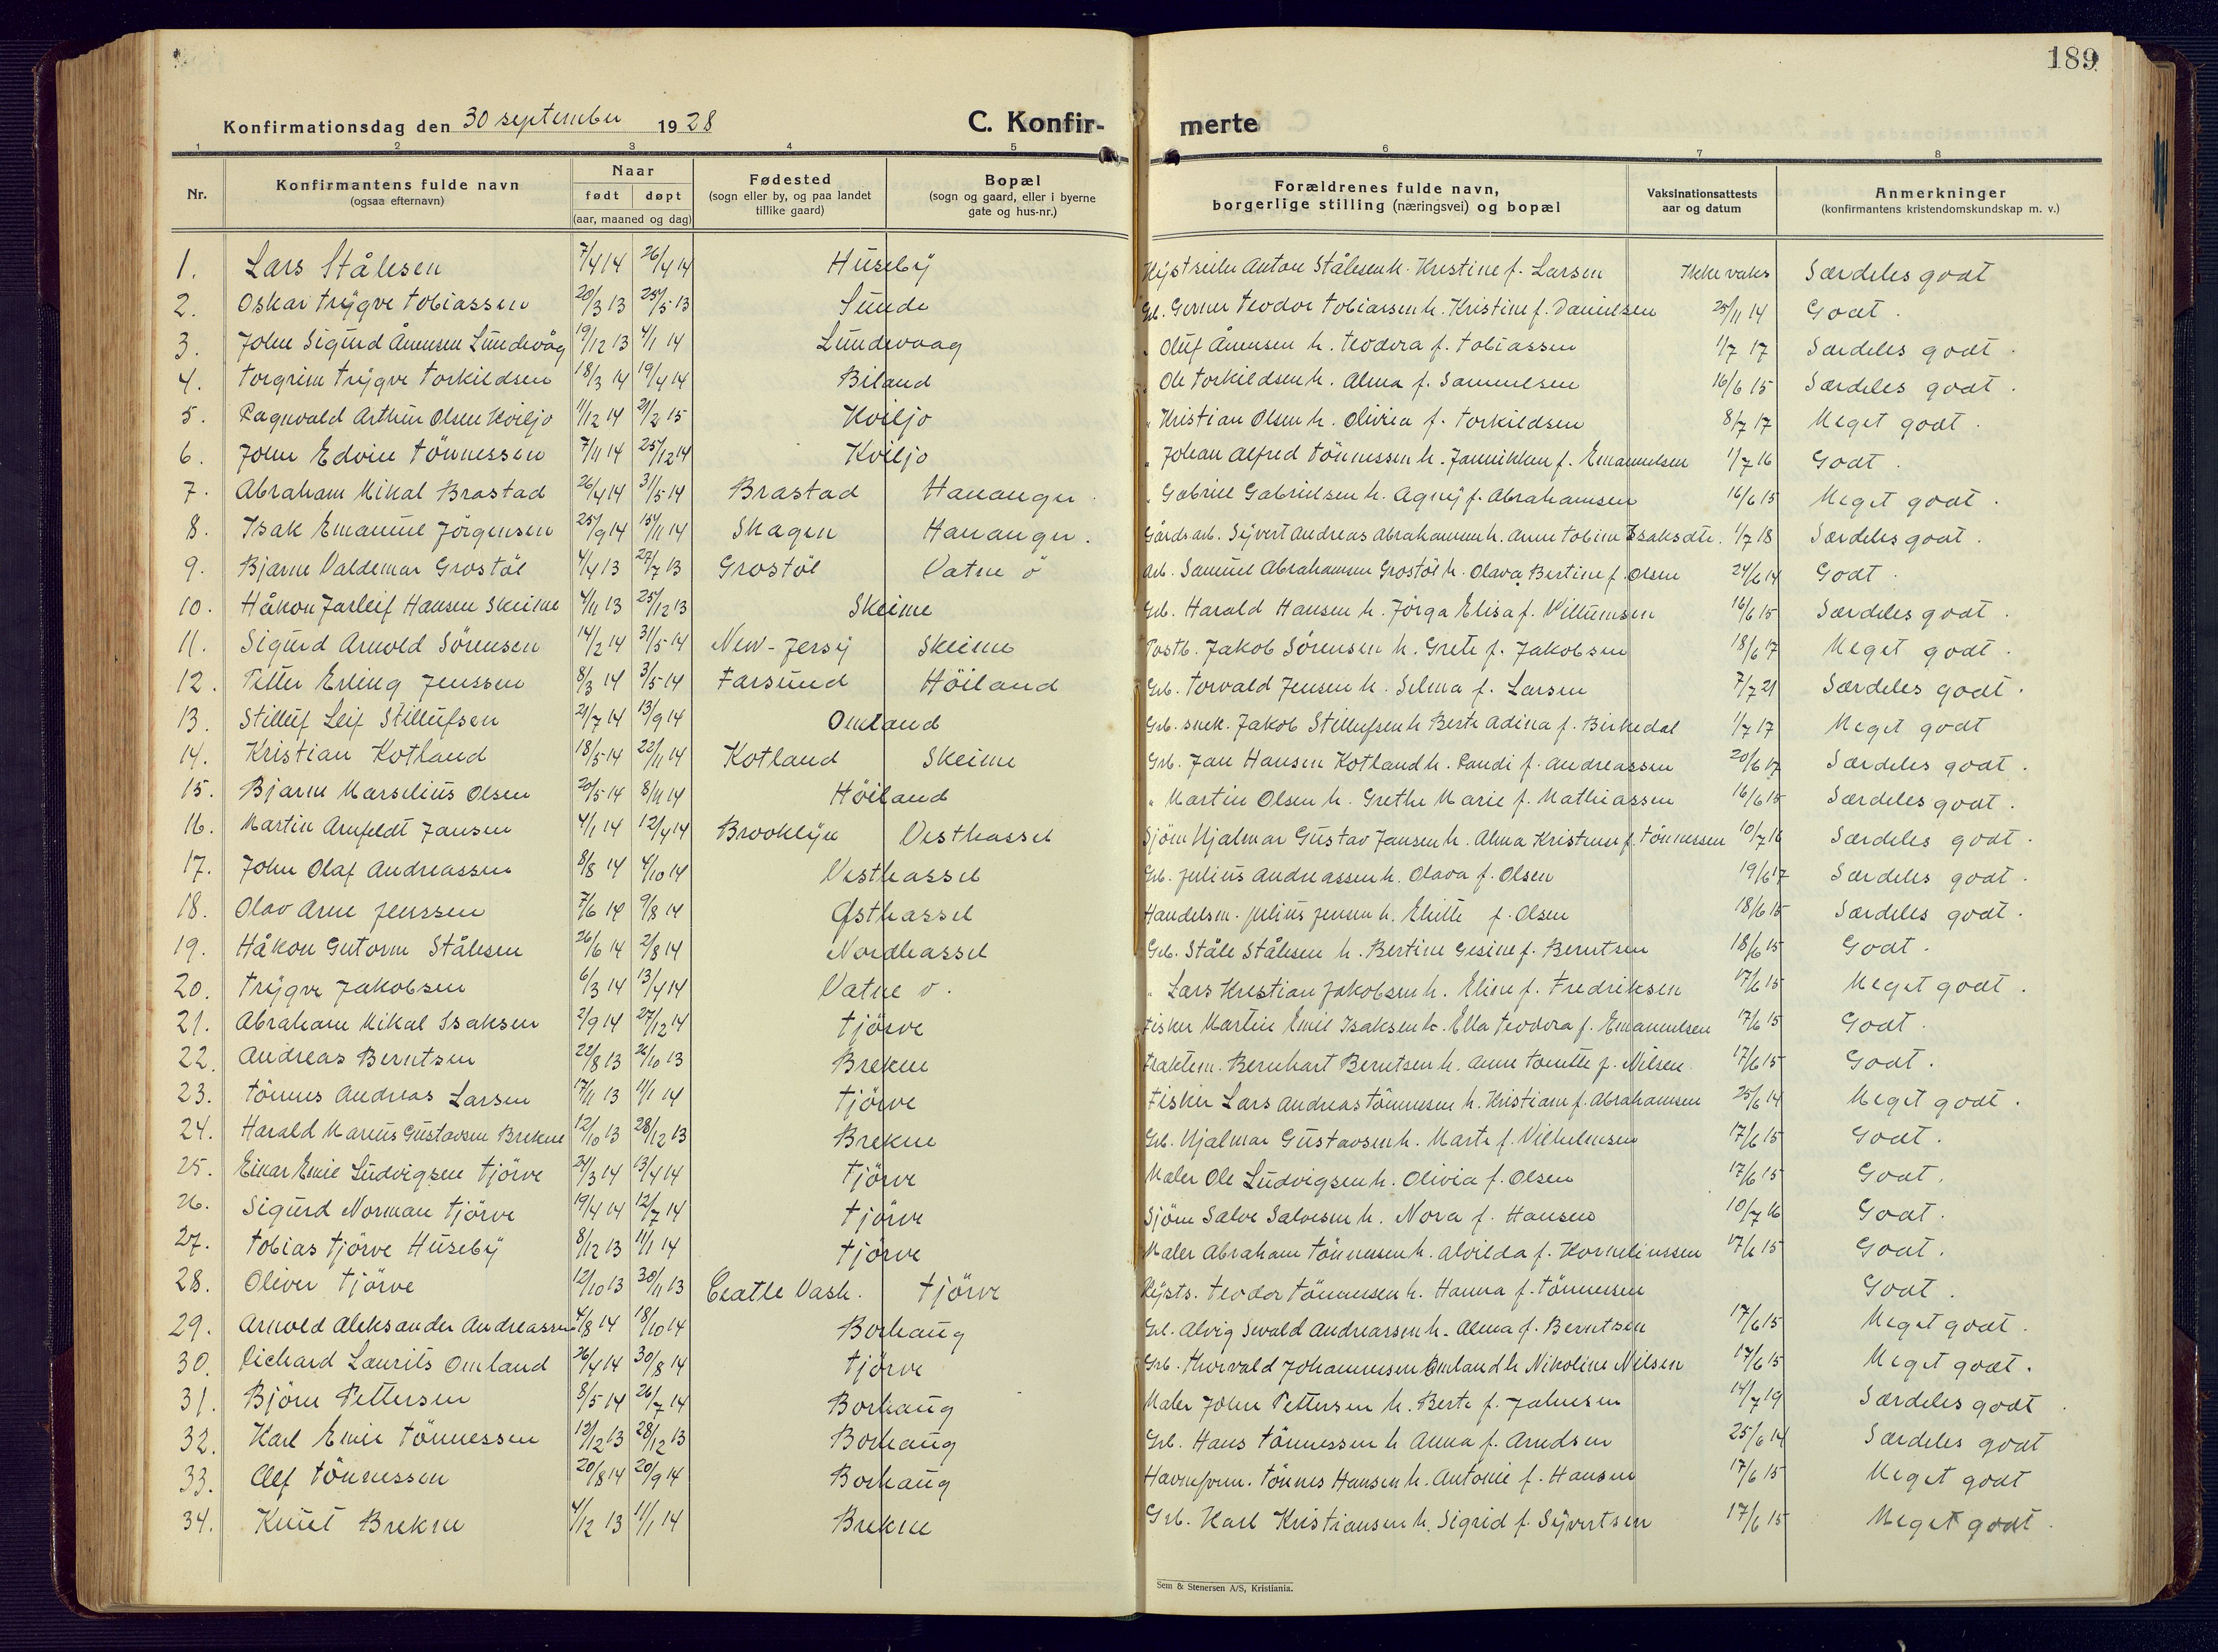 189
Konfirmationsdag den 30 september 1928 C. Konfir- merte
1 2 3 4 5 6 7 8
Nr. Konfirmantens fulde navn (ogsaa efternavn) Naar født døpt (aar, maaned og dag) Fødested (sogn eller by, og paa landet tillike gaard) Bopæl (sogn og gaard, eller i byerne gate og hus-nr.) Forældrenes fulde navn, borgerlige stilling (næringsvei) og bopæl Vaksinationsattests aar og datum Anmerkninger (konfirmantens kristendomskundskap m. v.)
1. Lars Stålesen 7/4 14 26/4 14 Huseby Anton Stålesen h. Kristine f. Larsen Ikke vaks Særdeles godt
2. Oskar Trygve Tobiassen 20/3 13 25/5 13 Sunde Gb. Gerner Teodor Tobiassen h. Kristine f. Danielsen 25/11 14 Godt.
3. John Sigurd Ånensen Lundevåg 19/12 13 4/1 14 Lundevaag " Oluf Ånensen h. Teodora f. Tobiassen 1/7 17 Særdeles godt.
4. Torgrim Trygve Torkildsen 18/3 14 19/4 14 Biland " Ole Torkildsen h. Alma f. Samuelsen 16/6 15 Særdeles godt.
5. Ragnvald Arthur Olsen Kviljo 11/12 14 21/2 15 Kviljo " Kristian Olsen h. Olivia f. Torkildsen 8/7 17 Meget godt.
6. John Edvin Tönnessen 7/11 14 25/12 14 Kviljo " Johan Alfred Tönnessen h. Jannikken f. Emanuelsen 1/7 16 Godt.
7. Abraham Mikal Brastad 26/4 14 31/5 14 Brastad Hananger. " Gabriel Gabrielsen h. Agny f. Abrahamsen 16/6 15 Meget godt.
8. Isak Emanuel Jörgensen 25/9 14 15/11 14 Skagen Hananger. Gårdsarb. Syvert Andreas Abrahamsen h. Anne Tobine Isaksdtr. 1/7 18 Særdeles godt.
9. Bjarne Valdemar Grostöl 4/4 13 27/7 13 Grostöl Vatne ö Arb. Samuel Abrahamsen Grostöl h. Olava Bertine f. Olsen 24/6 14 Godt.
10. Håkon Jarleif Hansen Skeime 4/11 13 25/12 13 Skeime Gb. Harald Hansen h. Jörga Elisa f. Villumsen 16/6 15 Særdeles godt.
11. Sigurd Arnold Sörensen 14/2 14 31/5 14 New-Jersy Skeime Postb. Jakob Sörensen h. Grete f. Jakobsen 18/6 17 Meget godt.
12. Petter Erling Jenssen 8/3 14 3/5 14 Farsund Höiland Gb. Torvald Jensen h. Selma f. Larsen 7/7 21 Særdeles godt.
13. Stilluf Leif Stillufsen 21/7 14 13/9 14 Omland Gb. snek. Jakob Stillufsen h Berte Adina f. Birkedal 1/7 17 Meget godt
14. Kristian Kotland 18/5 14 22/11 14 Kotland Skeime Gb. Jan Hansen Kotland h. Randi f. Andreassen 20/6 17 Særdeles godt.
15. Bjarne Marselius Olsen 20/5 14 8/11 14 Höiland " Martin Olsen h. Grethe Marie f. Mathiassen 16/6 15 Særdeles godt.
16. Martin Arnfeldt Jansen 4/1 14 12/4 14 Brooklyn Vesthassel Sjöm Hjalmar Gustav Jansen h. Alma Kristine f. Tönnessen 10/7 16 Særdeles godt.
17. John Olaf Andreassen 8/8 14 4/10 14 Vesthassel Gb. Julius Andreassen h. Olava f. Olsen 19/6 17 Særdeles godt.
18. Olav Arne Jenssen 7/6 14 9/8 14 Østhassel Handelsm. Julius Jensen h. f. Olsen 18/6 15 Særdeles godt.
19. Håkon Gutorm Stålesen 26/6 14 2/8 14 Nordhassel Gb. Ståle Stålesen h. Bertine Gesine f. Berntsen 18/6 15 Godt.
20. Trygve Jakobsen 6/3 14 13/4 14 Vatne v. " Lars Kristian Jakobsen h. Eline f. Fredriksen 17/6 15 Meget godt.
21. Abraham Mikal Isaksen 2/9 14 27/12 14 Tjörve Fisker Martin Emil Isaksen h. Ella Teodora f. Emanuelsen 17/6 15 Godt.
22. Andreas Berntsen 22/8 13 26/10 13 Brekne Traktem. Bernhart Berntsen h. Anne Tomette f. Nilsen 17/6 15 Godt.
23. Tönnes Andreas Larsen 17/11 13 11/1 14 Tjörve Fisker Lars Andreas Tönnessen h. Kristiane f. Abrahamsen 25/6 14 Meget godt.
24. Harald Marius Gustavsen Brekne 12/10 13 28/12 13 Brekne Gb. Hjalmar Gustavsen h. Marte f. Vilhelmsen 17/6 15 Godt.
25. Einar Emil Ludvigsen Tjörve 24/3 14 13/4 14 Tjörve Maler Ole Ludvigsen h. Olivia f. Olsen 17/6 15 Godt.
26. Sigurd Norman Tjörve 19/4 14 12/7 14 Tjörve Sjöm Salve Salvesen h. Nora f. Hansen 10/7 16 Godt.
27. Tobias Tjörve Huseby 8/12 13 11/1 14 Tjörve Maler Abraham Tönnesen h. Alvilda f. Korneliussen 17/6 15 Godt.
28. Oliver Tjörve 12/10 13 30/11 13 Ceatle Vash. Tjörve Kysts. Teodor Tönnesen h. Hanna f. Tönnesen Godt.
29. Arnold Aleksander Andreassen 4/8 14 18/10 14 Borhaug Gb. Alvig Sevald Andreassen h. Alma f. Berntsen 17/6 15 Meget godt.
30. Richard Laurits Omland 26/4 14 30/8 14 Tjörve Gb. Thorvald Johannesen Omland h Nikoline Nilsen 17/6 15 Meget godt.
31. Björn Pettersen 8/5 14 26/7 14 Borhaug Maler John Pettersen h. Berte f. Jahnsen 14/7 19 Særdeles godt.
32. Karl Emil Tönnessen 12/12 13 28/12 13 Borhaug Gb. Hans Tönnessen h Anna f. Arndsen 25/6 14 Særdeles godt
33. Alf Tönnessen 20/8 14 20/9 14 Borhaug Tönnes Hansen h. Antonie f. Hansen 17/6 15 Meget godt
34. Knut Brekne 4/12 13 11/1 14 Brekne Gb. Karl Kristiansen h. Sigrid f. Syvertsen 17/6 15 Meget godt.
Sem & Stenersen A/S, Kristiania.